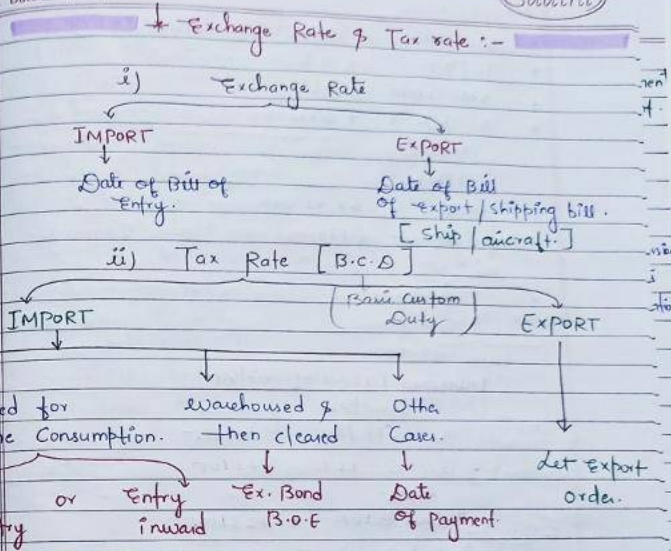 * Exchange Rate & Tax rate :-
i) Exchange Rate
IMPORT
EXPORT
Date of Bill of
Entry.
Date of Bill
of export / shipping bill.
[ Ship / aircraft. ]
ii) Tax Rate [ B.C.D ]
( Basic Custom
Duty )
IMPORT
EXPORT
ed for
Consumption.
warehoused &
then cleared
Other
Cases.
Let Export
order.
or Entry
inward
Ex. Bond
B.O.E
Date
of payment.